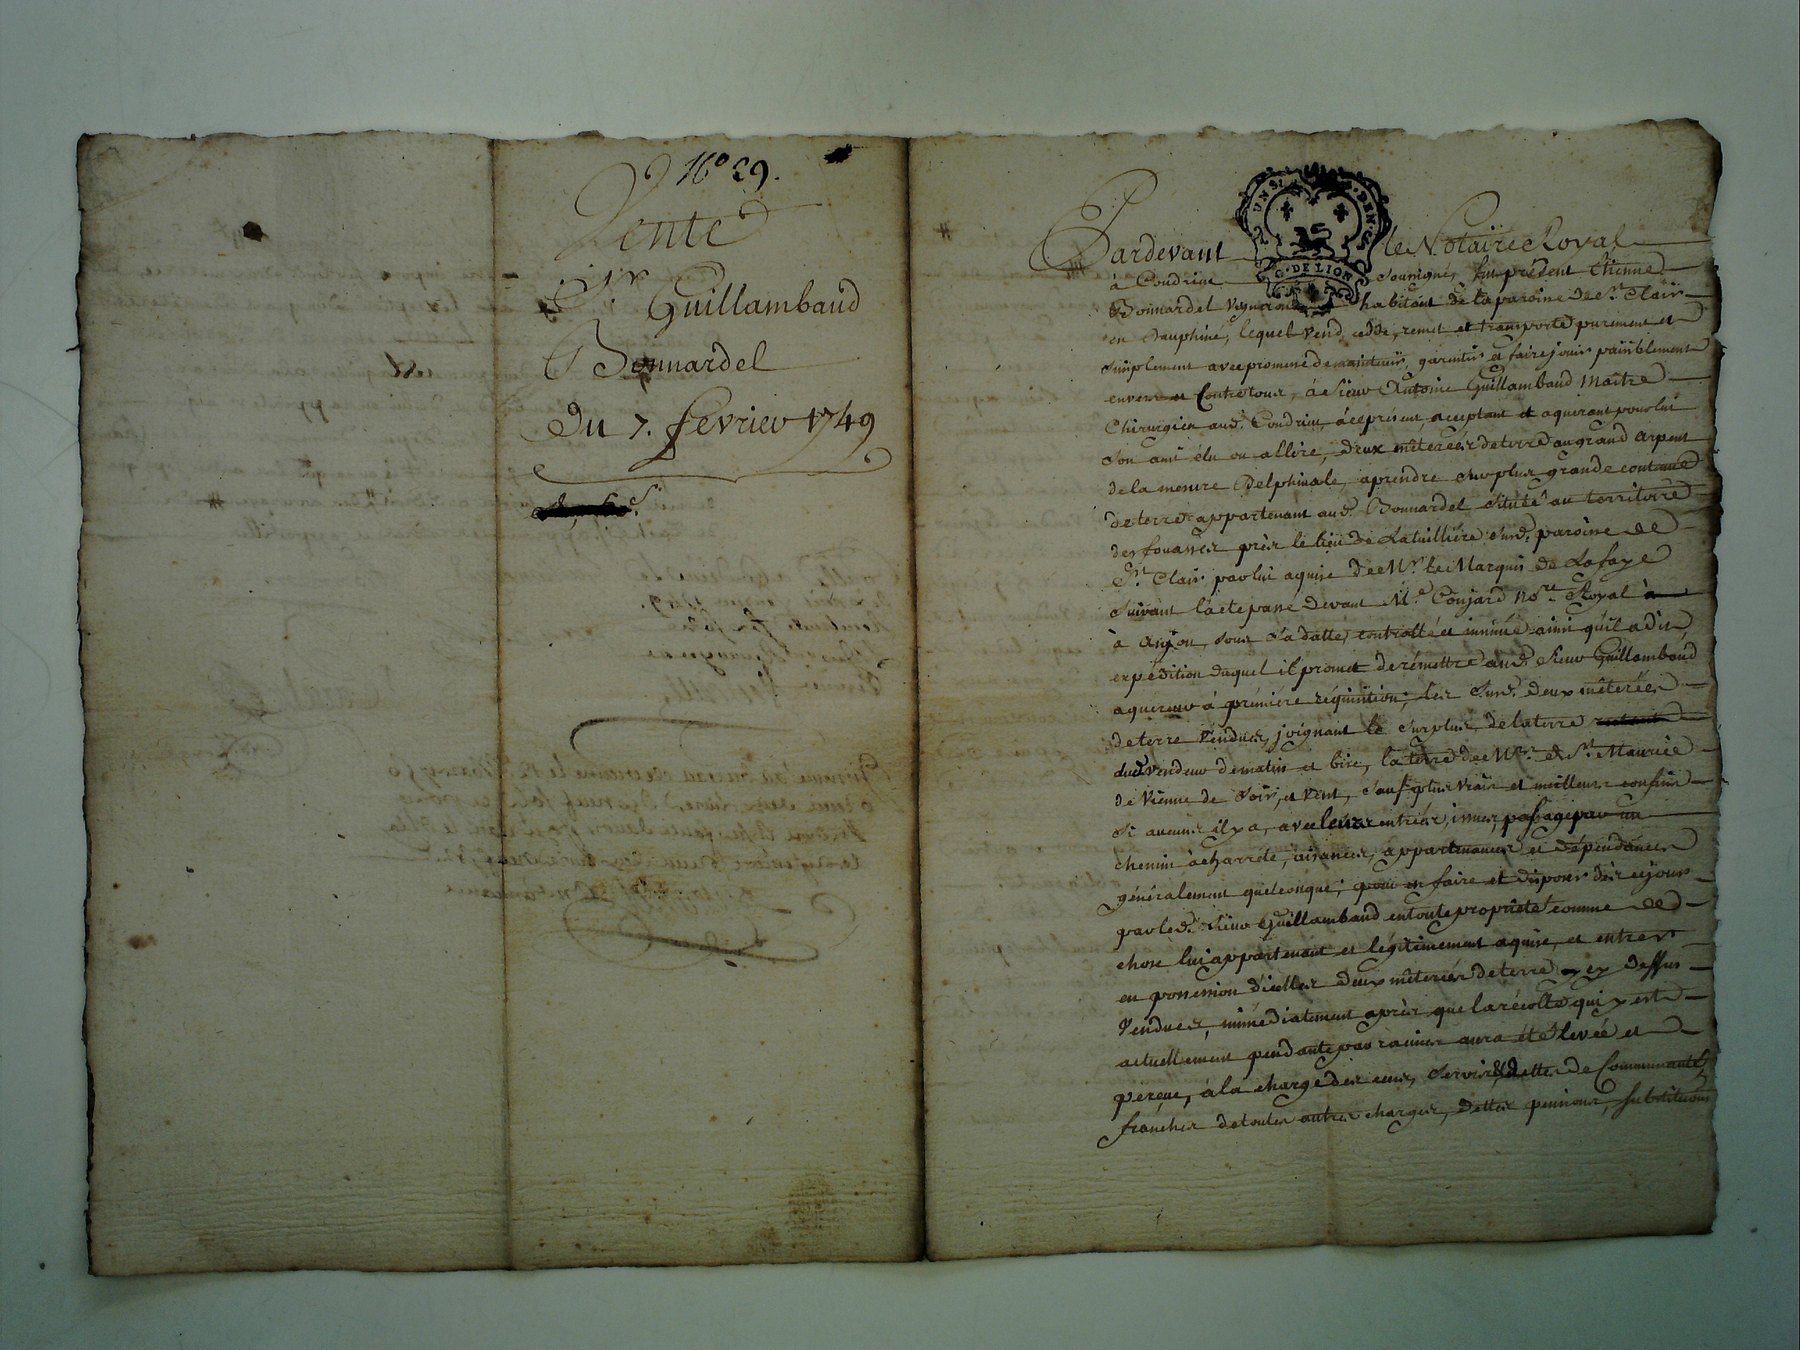 N° 29.
Vente
Sr Guillambaud
Bonnardel
Du 7. fevrier 1749
UN S. DEN.S
G. DE LION
Pardevant le Notaire Royal
à Condrieu soussigné, fut présent Etienne
Bonnardel Vigneron habitant de la paroisse de St. Clair
en Dauphiné, lequel vend, cedde, remet et transporte purement et
simplement avec promesse de maintenir, garentir et faire jouir paisiblement
envers et Contre tous, à Sieur Antoine Guillambaud Maître
Chirurgien aud. Condrieu, à ce présent, acceptant et aquerant pour lui
son ami élu ou à élire, deux méterées de terre au grand arpent
de la mesure Delphinale, à prendre sur plus grande contenue
de terre appartenant aud. Bonnardel située au territoire
des fouasses près le lieu de Latuillière susd. paroisse de
St. Clair par lui aquise de Mr. le Marquis de Lafaye
suivant l'acte passé devant Me. Conjard nore. Royal à
à Anjou, sous sa datte, controllé et insinué ainsi qu'il a dit,
expédition duquel il promet de rémettre aud. Sieur Guillambaud
aquereur à première réquisition; les susd. deux méterées
de terre vendues, joignant le surplus de la terre
dud. vendeur de matin et bise, la terre de Mrs. de St. Maurice
de Vienne de soir, et vent, sauf plus vrais et meilleurs confins
si aucuns il y a, avec leurs entrées, issues, passage par un
chemin à charrete, aisances, appartenances et dépendances
généralement quelconque; pour en faire et disposer dès cejour
par led. Sieur Guillambaud en toute propriété comme de
chose lui appartenant et légitimement aquise, et entrer
en possession d'icelles deux méterées de terre cy dessus
Vendues, immédiatement après que la récolte qui y est
actuellement pendante par racines aura été levée et
perçue, à la charge des cens, servis & dettes de Communauté,
franches de toutes autres charges, dettes, pensions, substitutions